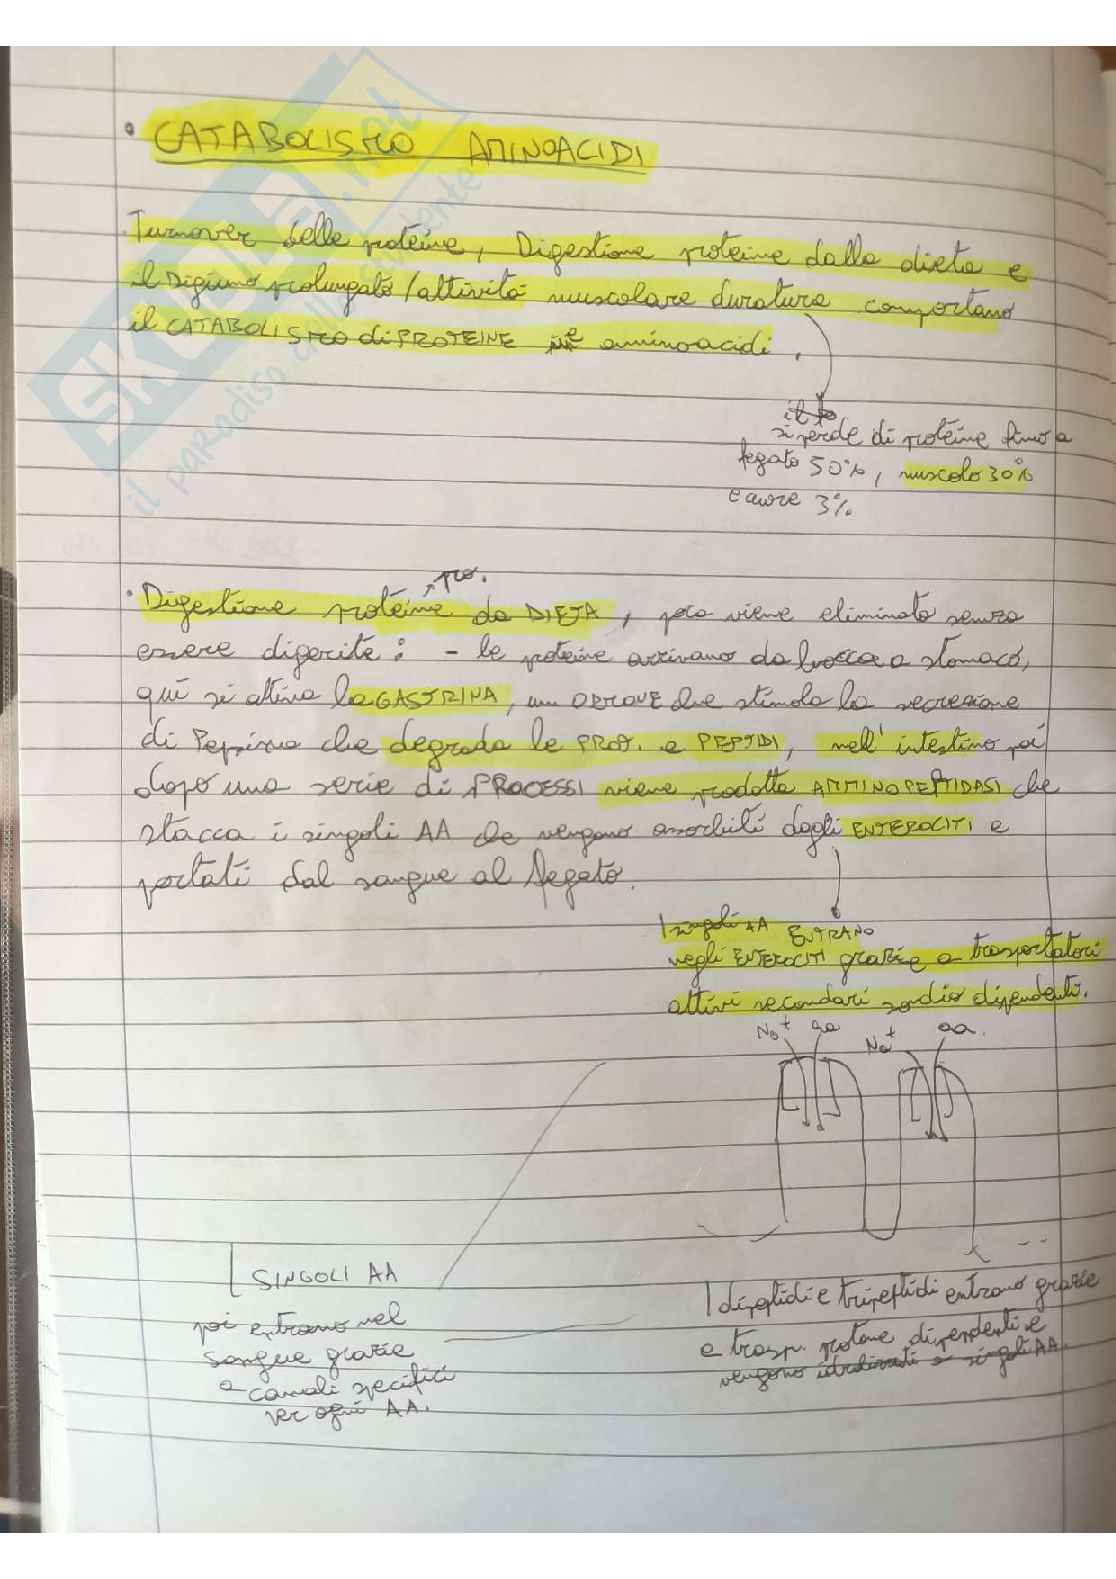 • CATABOLISMO AMINOACIDI
Turnover delle proteine, Digestione proteine dalla dieta e
il Digiuno prolungato/attività muscolare duratura comportano
il CATABOLISMO di PROTEINE e aminoacidi.
si perde di proteine fino a
fegato 50%, muscolo 30%
e cuore 3%
• Digestione proteine da DIETA, poco viene eliminato senza
essere digerite: - le proteine arrivano da bocca a stomaco,
qui si attiva la GASTRINA, un ORMONE che stimola la secrezione
di Pepsina che degrada le PROT. e PEPTIDI, nell'intestino poi
dopo una serie di PROCESSI viene prodotta AMMINOPEPTIDASI che
stacca i singoli AA che vengono assorbiti dagli ENTEROCITI e
portati dal sangue al fegato.
I singoli AA ENTRANO
negli ENTEROCITI grazie a trasportatori
attivi secondari sodio dipendenti.
Na+ aa Na+ aa.
I SINGOLI AA
poi entrano nel
sangue grazie
a canali specifici
per ogni AA.
I dipeptidi e tripeptidi entrano grazie
a trasp. protone dipendenti e
vengono idrolizzati a singoli AA.
SKUOLA.net
il paradiso dello studente